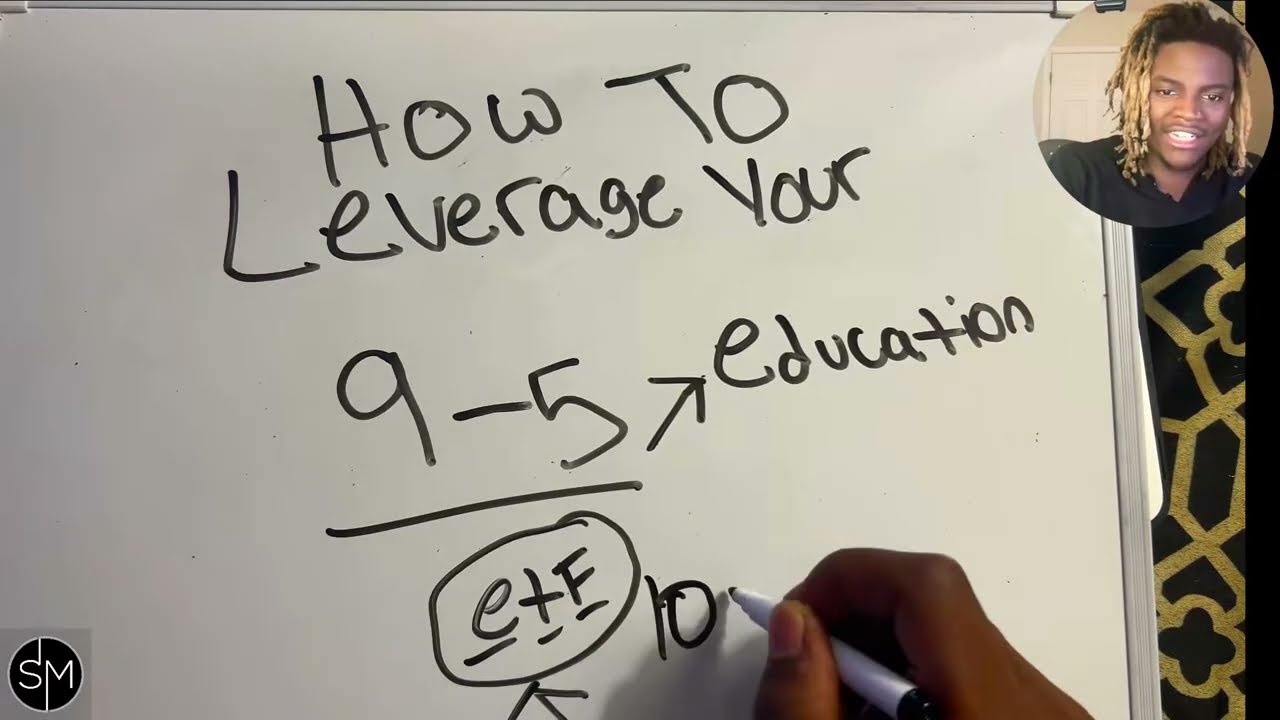 How To
Leverage Your
9-5 ↗ education
etF 10
SM